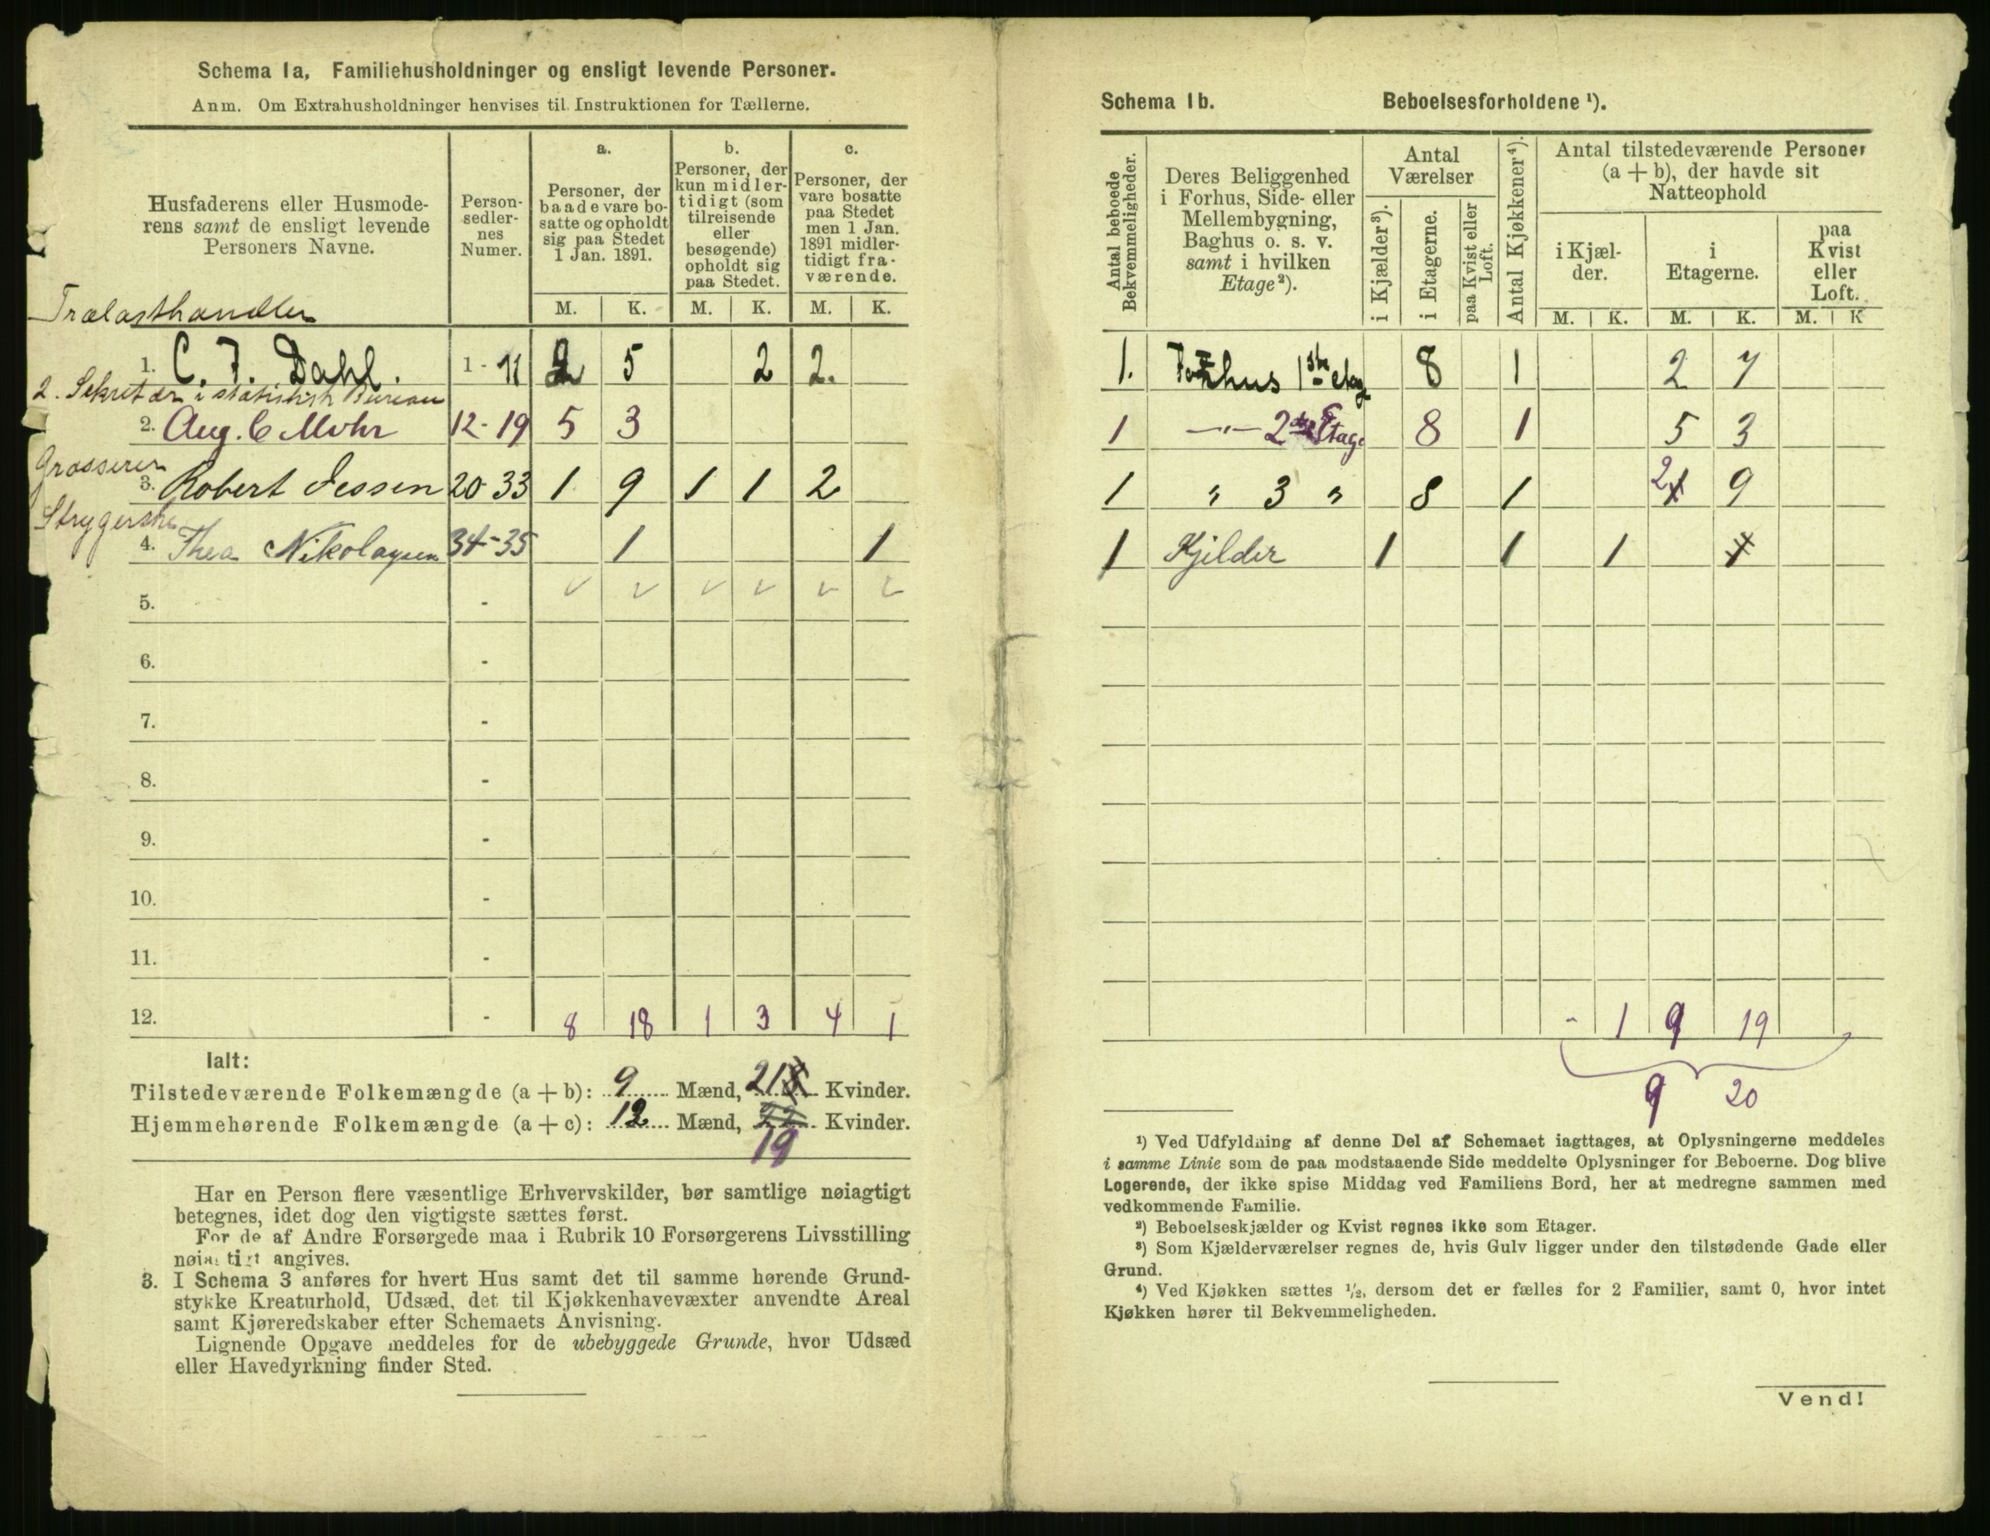 Schema 1a, Familiehusholdninger og ensligt levende Personer.
Anm. Om Extrahusholdninger henvises til Instruktionen for Tællerne.
Husfaderens eller Husmode-
rens samt de ensligt levende
Personers Navne.
Person-
sedler-
nes
Numer.
a.
Personer, der
baade vare bo-
satte og opholdt
sig paa Stedet
1 Jan. 1891.
b.
Personer, der
kun midler-
tidigt (som
tilreisende
eller
besøgende)
opholdt sig
paa Stedet.
c.
Personer, der
vare bosatte
paa Stedet
men 1 Jan.
1891 midler-
tidigt fra-
værende.
M. K. M. K. M. K.
Trælasthandler
1. C. J. Dahl. 1-11 2 5 2 2.
2. Sekretær i statistisk Bureau
2. Aug. C Mohr 12-19 5 3
Grosserer
3. Robert Jessen 20-33 1 9 1 1 2
Strygerske
4. Thea Nikolaysen 34-35 1 1
5. -
6. -
7. -
8. -
9. -
10. -
11. -
12. - 8 18 1 3 4 1
Ialt:
Tilstedeværende Folkemængde (a + b): 9 Mænd, 21 Kvinder.
Hjemmehørende Folkemængde (a + c): 12 Mænd, 22 Kvinder.
19
Har en Person flere væsentlige Erhvervskilder, bør samtlige nøiagtigt
betegnes, idet dog den vigtigste sættes først.
For de af Andre Forsørgede maa i Rubrik 10 Forsørgerens Livsstilling
nøiagtigt angives.
3. I Schema 3 anføres for hvert Hus samt det til samme hørende Grund-
stykke Kreaturhold, Udsæd, det til Kjøkkenhavevæxter anvendte Areal
samt Kjøreredskaber efter Schemaets Anvisning.
Lignende Opgave meddeles for de ubebyggede Grunde, hvor Udsæd
eller Havedyrkning finder Sted.
Schema 1b. Beboelsesforholdene ¹).
Antal beboede
Bekvemmeligheder.
Deres Beliggenhed
i Forhus, Side- eller
Mellembygning,
Baghus o. s. v.
samt i hvilken
Etage ²).
Antal
Værelser
i Kjælder ³).
i Etagerne.
paa Kvist eller
Loft.
Antal Kjøkkener ⁴).
Antal tilstedeværende Personer
(a + b), der havde sit
Natteophold
i Kjæl-
der.
i
Etagerne.
paa
Kvist
eller
Loft.
M. K. M. K. M. K
1. Forhus 1ste etag 8 1 2 7
1 —"— 2den Etage 8 1 5 3
1 " 3 " 8 1 2 9
1 Kjelder 1 1 1 1
- 1 9 19
9 20
¹) Ved Udfyldning af denne Del af Schemaet iagttages, at Oplysningerne meddeles
i samme Linie som de paa modstaaende Side meddelte Oplysninger for Beboerne. Dog blive
Logerende, der ikke spise Middag ved Familiens Bord, her at medregne sammen med
vedkommende Familie.
²) Beboelseskjælder og Kvist regnes ikke som Etager.
³) Som Kjælderværelser regnes de, hvis Gulv ligger under den tilstødende Gade eller
Grund.
⁴) Ved Kjøkken sættes ½, dersom det er fælles for 2 Familier, samt 0, hvor intet
Kjøkken hører til Bekvemmeligheden.
Vend!